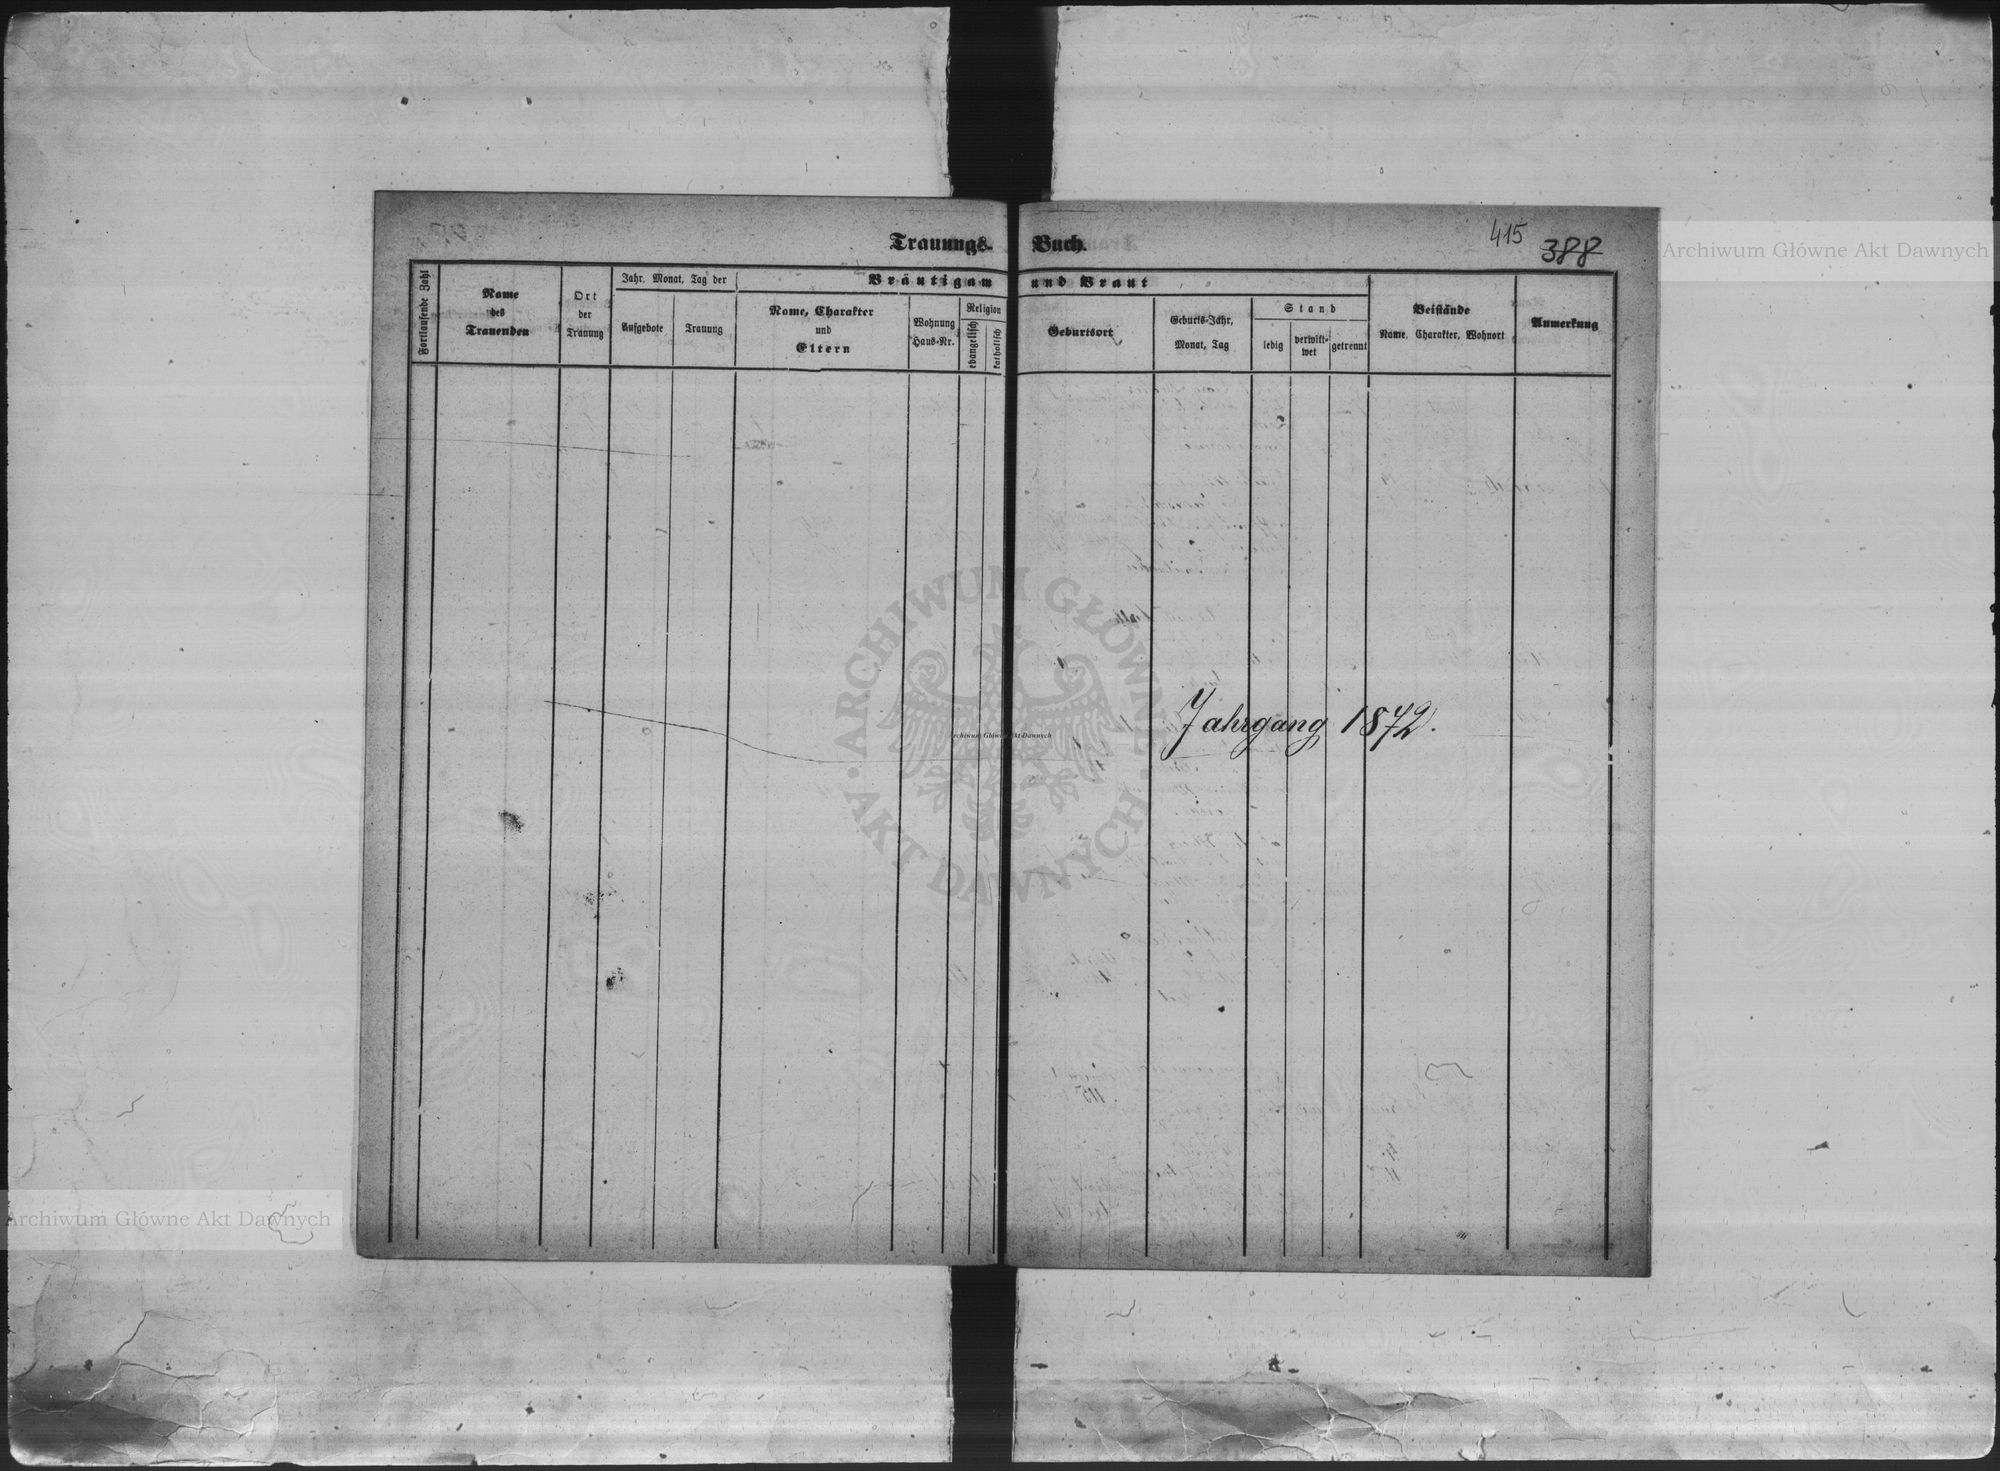 Trauungs- Buch.
415
388
Fortlaufende Zahl
Name
des
Trauenden
Ort
der
Trauung
Jahr, Monat, Tag der
Aufgebote
Trauung
Bräutigam und Braut
Name, Charakter
und
Eltern
Wohnung
Haus-Nr.
Religion
evangelisch
katholisch
Geburtsort
Geburts-Jahr,
Monat, Tag
Stand
ledig
verwitt-
wet
getrennt
Beistände
Name, Charakter, Wohnort
Anmerkung
Jahrgang 1872.
Archiwum Główne Akt Dawnych
ARCHIWUM GŁÓWNE
AKT DAWNYCH
Archiwum Główne Akt Dawnych
Archiwum Główne Akt Dawnych